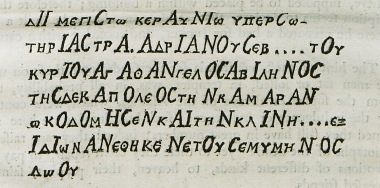 ΔΙΙ ΜΕΓΙΣΤω ΚΕΡΑΥΝΙω ΥΠΕΡCω-
ΤΗΡΙΑC ΤΡΑ. ΑΔΡΙΑΝΟΥCΕΒ....ΤΟΥ
ΚΥΡΙΟΥ ΑΓΑΘΑΝΓΕΛΟC ΑΒΙΛΗΝΟC
ΤΗC ΔΕΚΑΠΟΛΕΟC ΤΗΝ ΚΑΜΑΡΑΝ
ωΚΟΔΟΜΗCΕΝ ΚΑΙ ΤΗΝ ΚΛΙΝΗ....ΕΞ
ΙΔΙωΝ ΑΝΕΘΗΚΕΝ ΕΤΟΥC ΕΜΥ ΜΗΝΟC
ΛωΟΥ